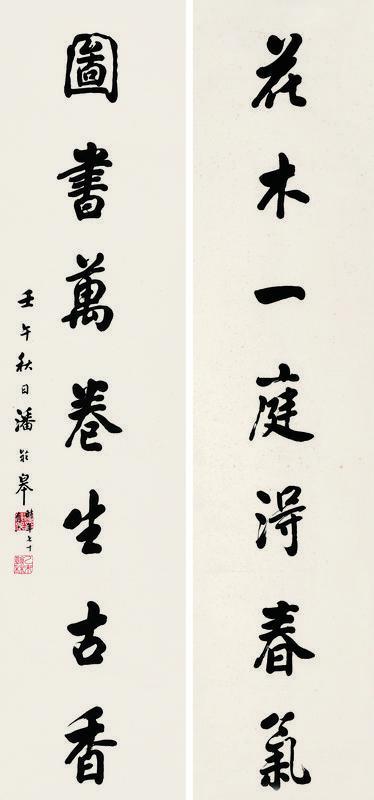 花木一庭得春氣
圖書萬卷生古香
壬午秋日潘齡皋
時年七十